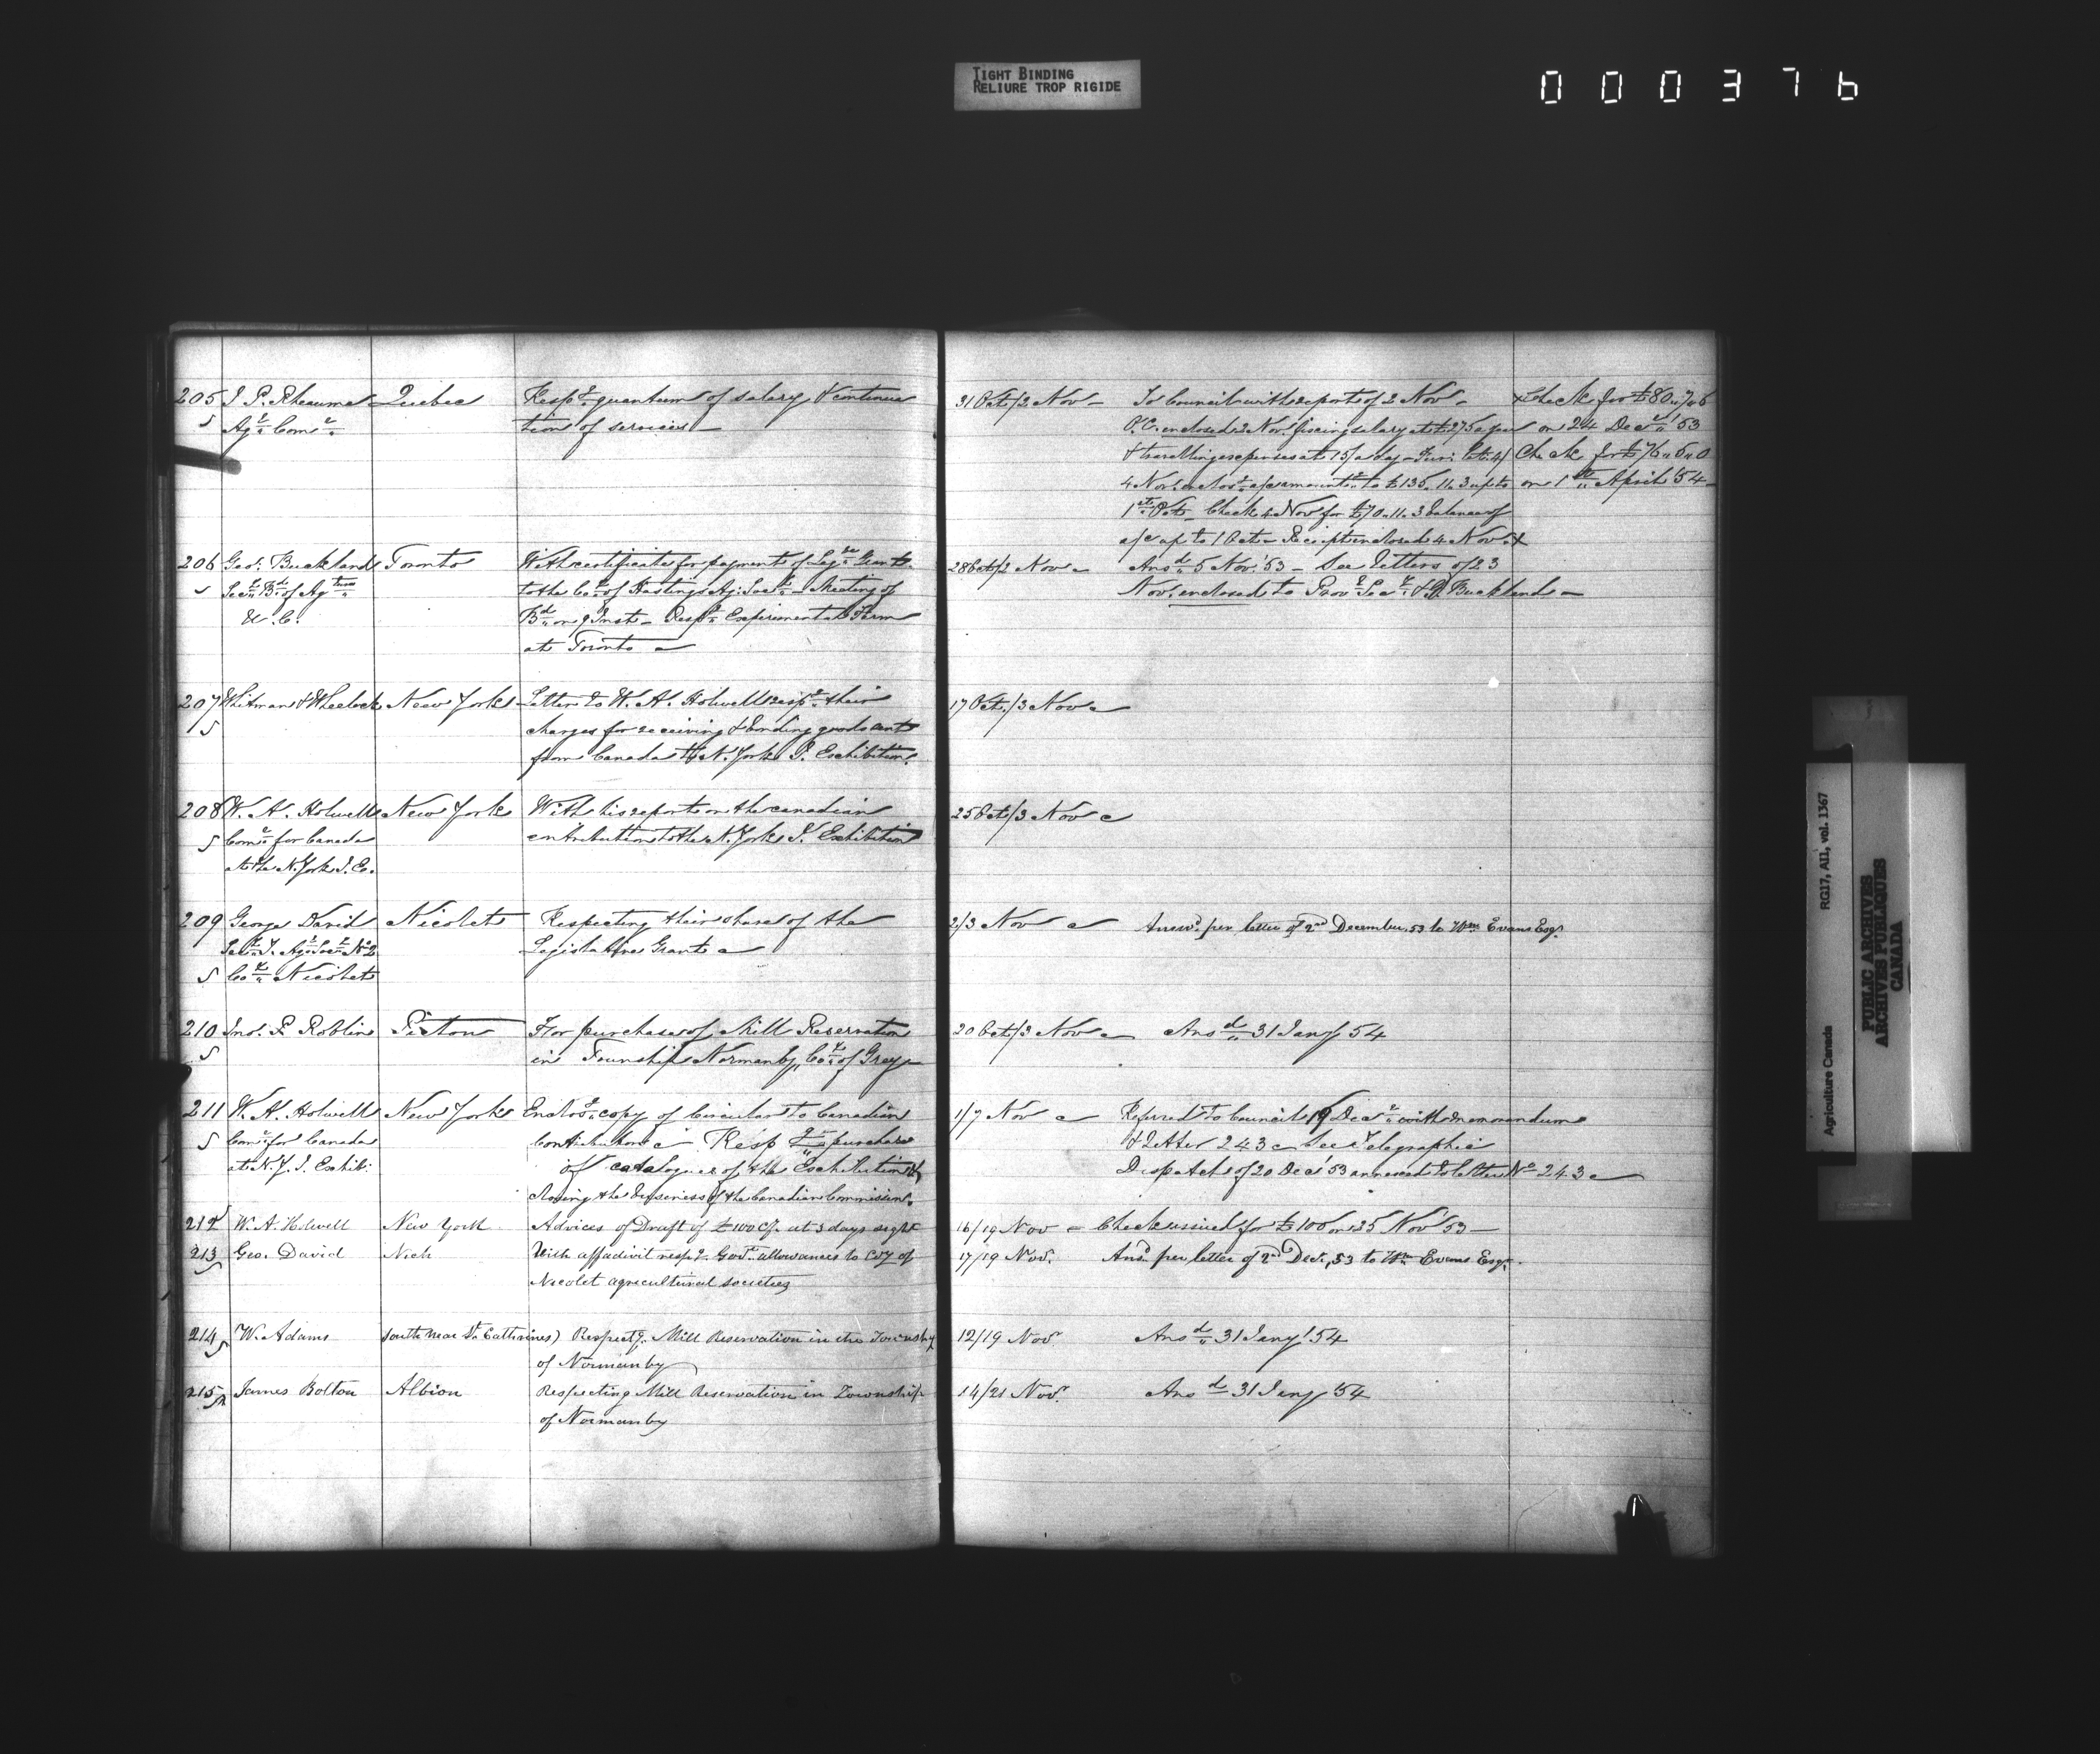 TIGHT BINDING
RELIURE TROP RIGIDE
000376
205 J. P. Rheaume Quebec Respg. quantum of salary & continua
5 Agl. Comr. tion of services —
206 Geo. Buckland Toronto With certificate for payment of Lege. Grant
Secy. Bd. of Agture to the Co. of Hastings Ag: Socy. — Meeting of
U. C. Bd. on 9 Inst — Respg. Experimental Farm
at Toronto
207 Whitman & Wheelock New York Letter to W. A. Holwell respg. their
15 charges for receiving & bonding goods sent
from Canada to N. York I. Exhibition.
208 W. A. Holwell New York With his report on the canadian
5 Comr. for Canada contribution to the N. York I. Exhibition
at the N. York I. Ex.
209 George David Nicolet Respecting their share of the
Secy. Agl. Socy. No 2 Legislative Grant
5 Co. Nicolet
210 Jno. P. Roblin Picton For purchase of Mill Reservation
5 in Township Normanby, Co. of Grey
211 W. A. Holwell New York Enclosg. copy of Circular to Canadian
5 Comr. for Canada Contributions Respg. purchase
at N. Y. I. Exhib: of catalogues of the Exhibition &
closing the business of the Canadian Commission.
212 W. A. Holwell New York Advices of Draft of £100 Cy. at 3 days sight
213 Geo. David Nich With affadivit respg. Govt. allowances to Cty of
Nicolet agricultural societies
214 W. Adams South near St. Catherines) Respectg. Mill Reservation in the Township
of Normanby
215 James Bolton Albion Respecting Mill Reservation in Township
of Normanby
31 Oct/2 Nov — To Council with report of 2 Nov — x Check for £80.7.6
O. C. enclosed 2 Nov. fixing salary at £275 a year on 24 Decr 53
& travelling expenses at 15/ a day — Check for £76.0.0
4 Nov. enclosg. a/c amountg. to £135.11.3 up to on 1st April 54
1st Oct — Check 4 Nov for £70.11.3 balance of
a/c up to 1 Oct — Receipt enclosed 4 Nov. x
28 Oct/2 Nov Ansd. 5 Nov. 53 — See letters of 23
Nov. enclosed to Prov. Secy. & G. Buckland —
17 Oct/3 Nov
25 Oct/3 Nov
2/3 Nov Answd. per letter of 2nd December, 53 to Wm Evans Esqr.
20 Oct/3 Nov Ansd. 31 Jany 54
1/7 Nov Referred to Council 19 Decr. with memorandum
& Letter 243 See Telegraphic
Dispatch of 20 Decr 53 annexed to letter No 243
16/19 Nov Check issued for £100 on 25 Nov 53 —
17/19 Nov. Ansd. per letter of 2nd Decr, 53 to Wm Evans Esqr.
12/19 Nov Ansd. 31 Jany 54
14/21 Nov. Ansd. 31 Jany 54
Agriculture Canada RG17, AI1, vol. 1367
PUBLIC ARCHIVES
ARCHIVES PUBLIQUES
CANADA